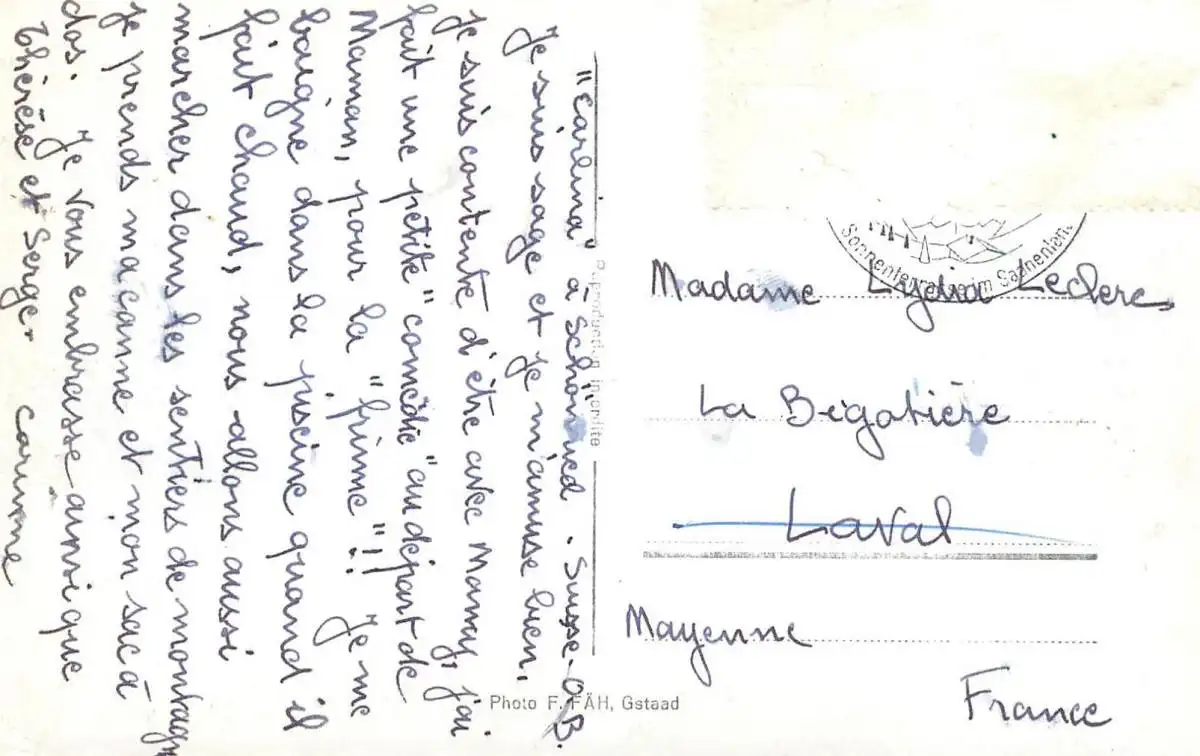 "Carlina" à Schönried. Suisse. O.B.
Je suis sage et je m'amuse bien,
je suis contente d'être avec Mamy, j'ai
fait une petite "comédie" au départ de
Maman, pour la "frime"!! Je me
baigne dans la piscine quand il
fait chaud, nous allons aussi
marcher dans les sentiers de montagn
je prends ma canne et mon sac à
dos. Je vous embrasse ainsi que
Thérèse et Serge. Carinne
Reproduction interdite
Photo F. FÄH, Gstaad
Sonnenterrasse im Saanenland
Madame Lydia Leclerc
La Bégatière
Laval
Mayenne
France